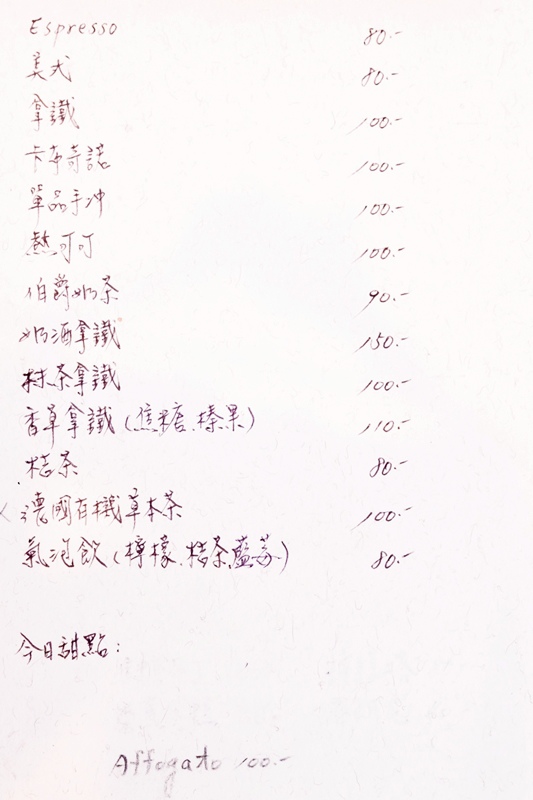 Espresso 80.-
美式 80.-
拿鐵 100.-
卡布奇諾 100.-
單品手冲 100.-
熱可可 100.-
伯爵奶茶 90.-
奶酒拿鐵 150.-
抹茶拿鐵 100.-
香草拿鐵(焦糖.榛果) 110.-
桔茶 80.-
德國有機草本茶 100.-
氣泡飲(檸檬.桔茶.藍莓) 80.-
今日甜點:
Affogato 100.-